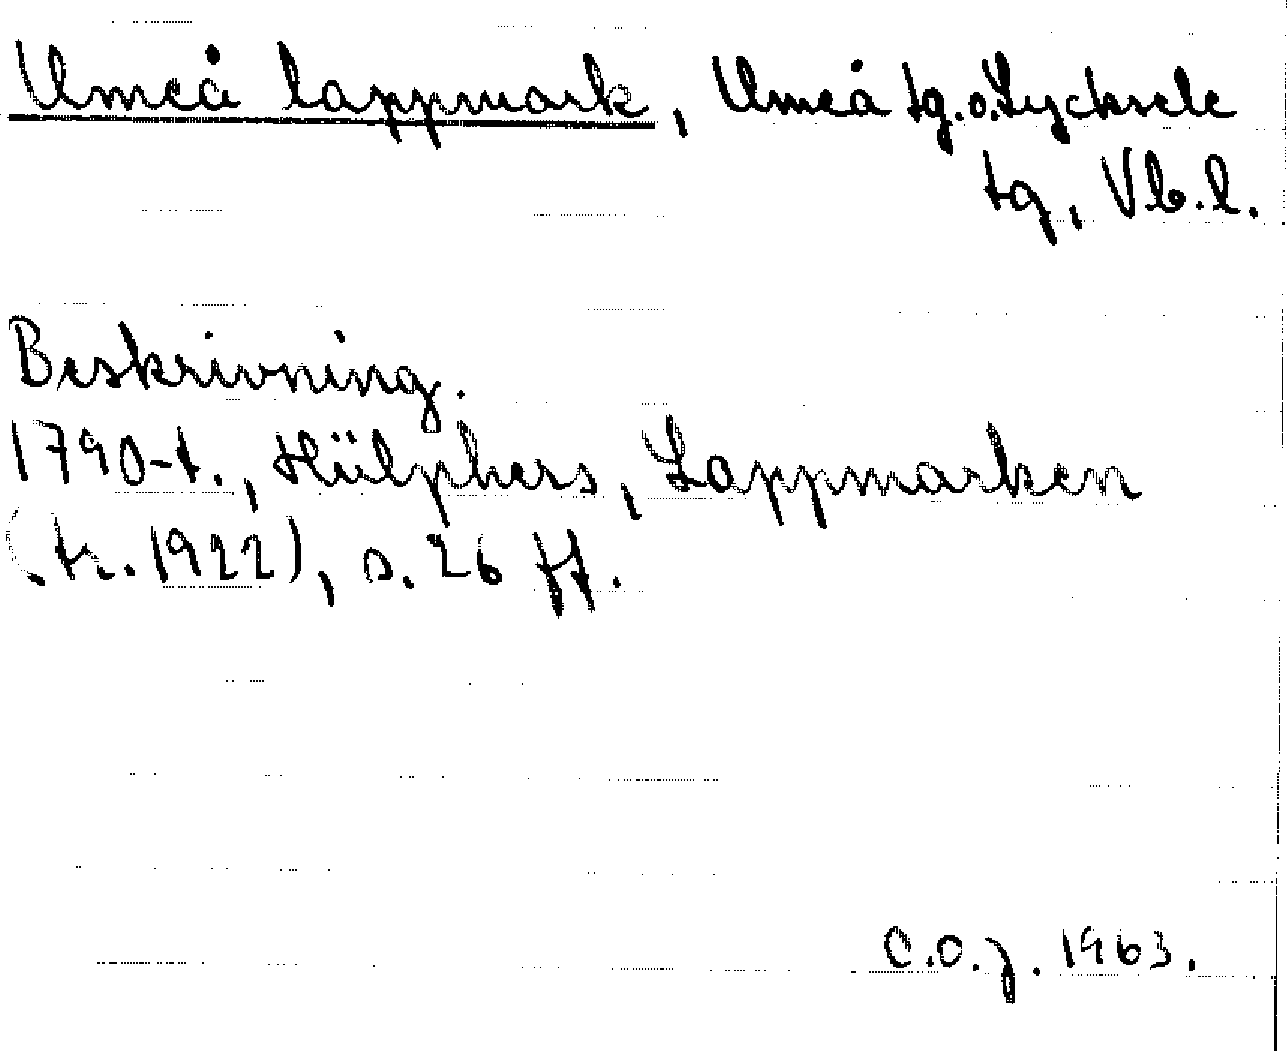 Umeå lappmark, Umeå tg. o. Lycksele
tg, Vb. l.
Beskrivning.
1790-t., Hülphers, Lappmarken
(tr. 1922), s. 26 ff.
C.O.J. 1963.